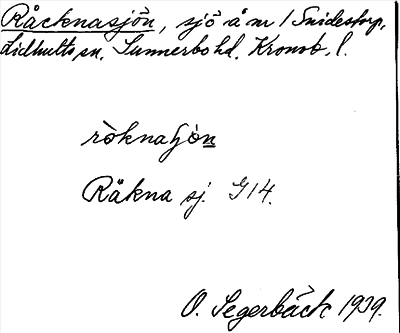 Råcknasjön, sjö å nr 1 Snidestorp,
Lidhults sn, Sunnerbo hd. Kronob. l.
ròknaʃö̀n
Råkna sj. G14.
O. Segerbäck 1939.